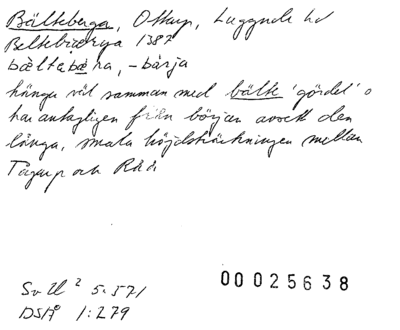 Bältebergа, Ottarp, Luggude hd
Beltebiærya 1382
bæltabæra, -bärja
hänga väl samman med bälte 'gördel' o
har antagligen från början avsett den
långa, smala höjdsträckningen mellan
Tågarp och Råå
Sv U² 5:571
DSÅ 1:279
00025638